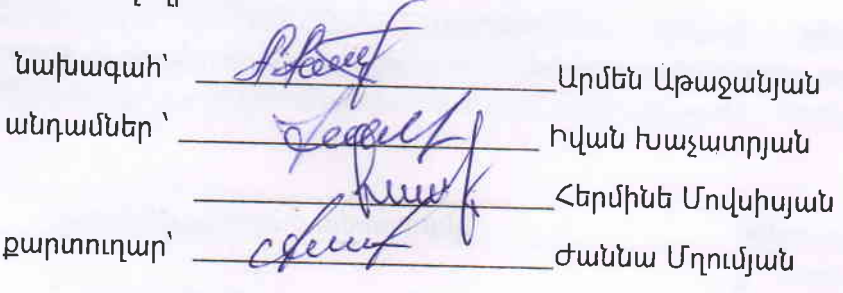 նախագահ՝ Արմեն Աթաջանյան
անդամներ ՝ Իվան Խաչատրյան
Հերմինե Մովսիսյան
քարտուղար՝ Ժաննա Մղումյան